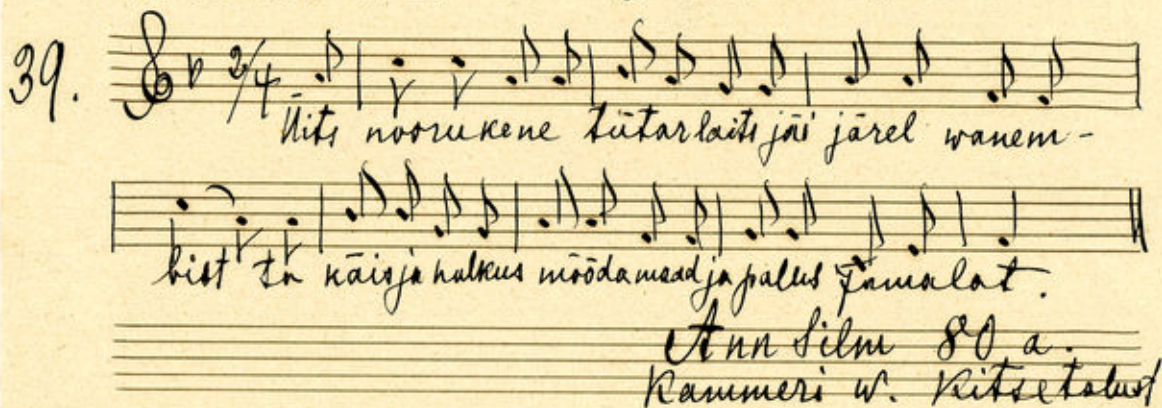 39. 2/4
Üits noorukene tütarlaits jäi järel wanem-
bist ta käis ja halkus mööda maad ja pallus Jumalat.
Ann Silm 80 a.
Kammeri w. Kitse talust